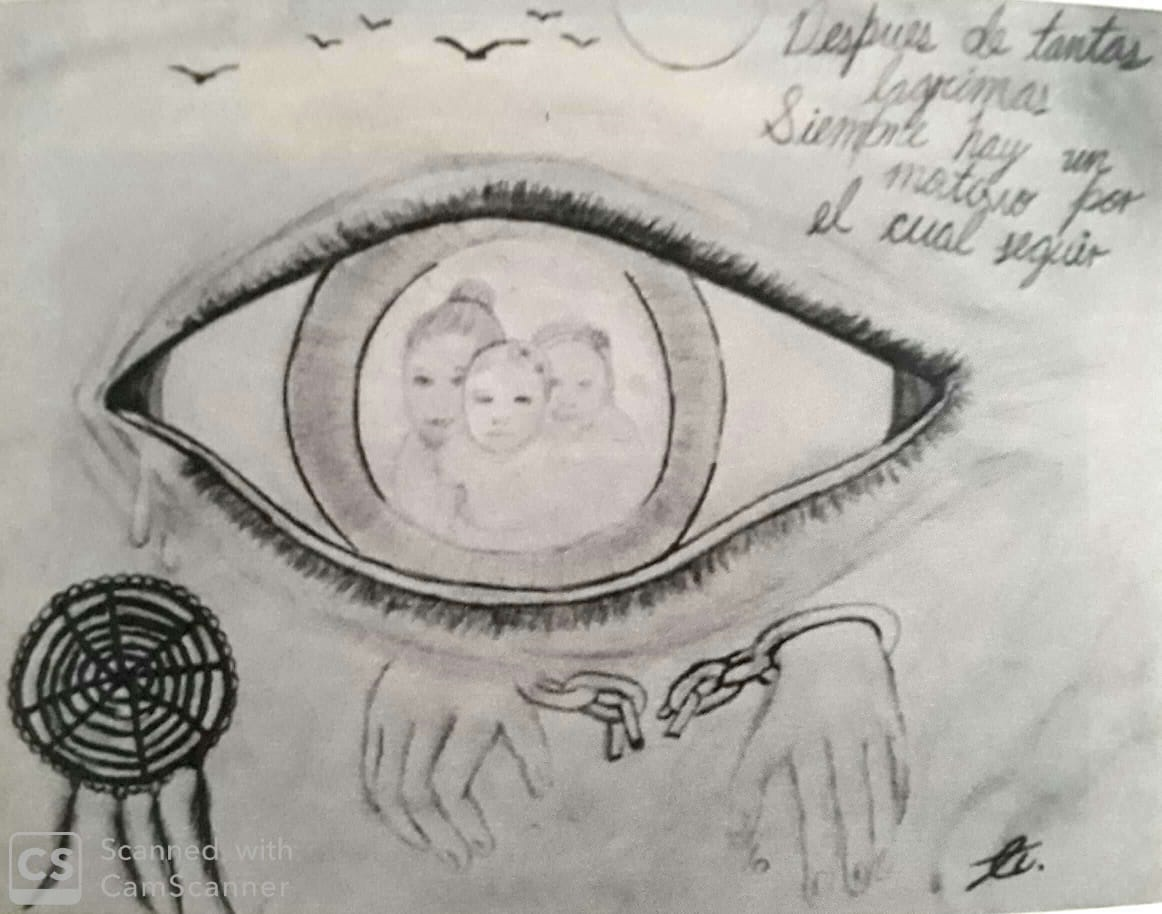 Despues de tantas
lagrimas
Siempre hay un
motivo por
el cual seguir
CS Scanned with
CamScanner